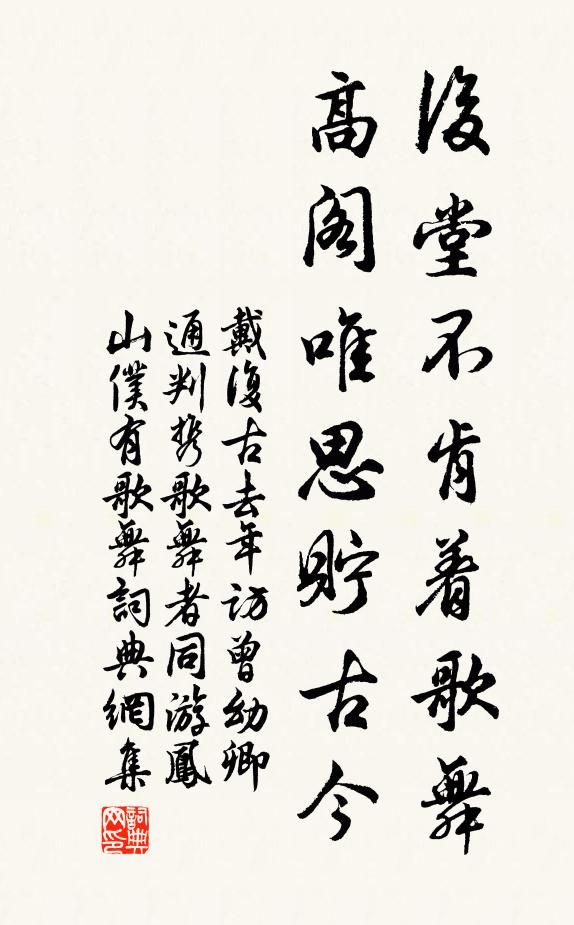 後堂不肯着歌舞
高閣唯思貯古今
戴復古去年訪曾幼卿
通判携歌舞者同游鳳
山僕有歌舞詞典網集
詞典
网印